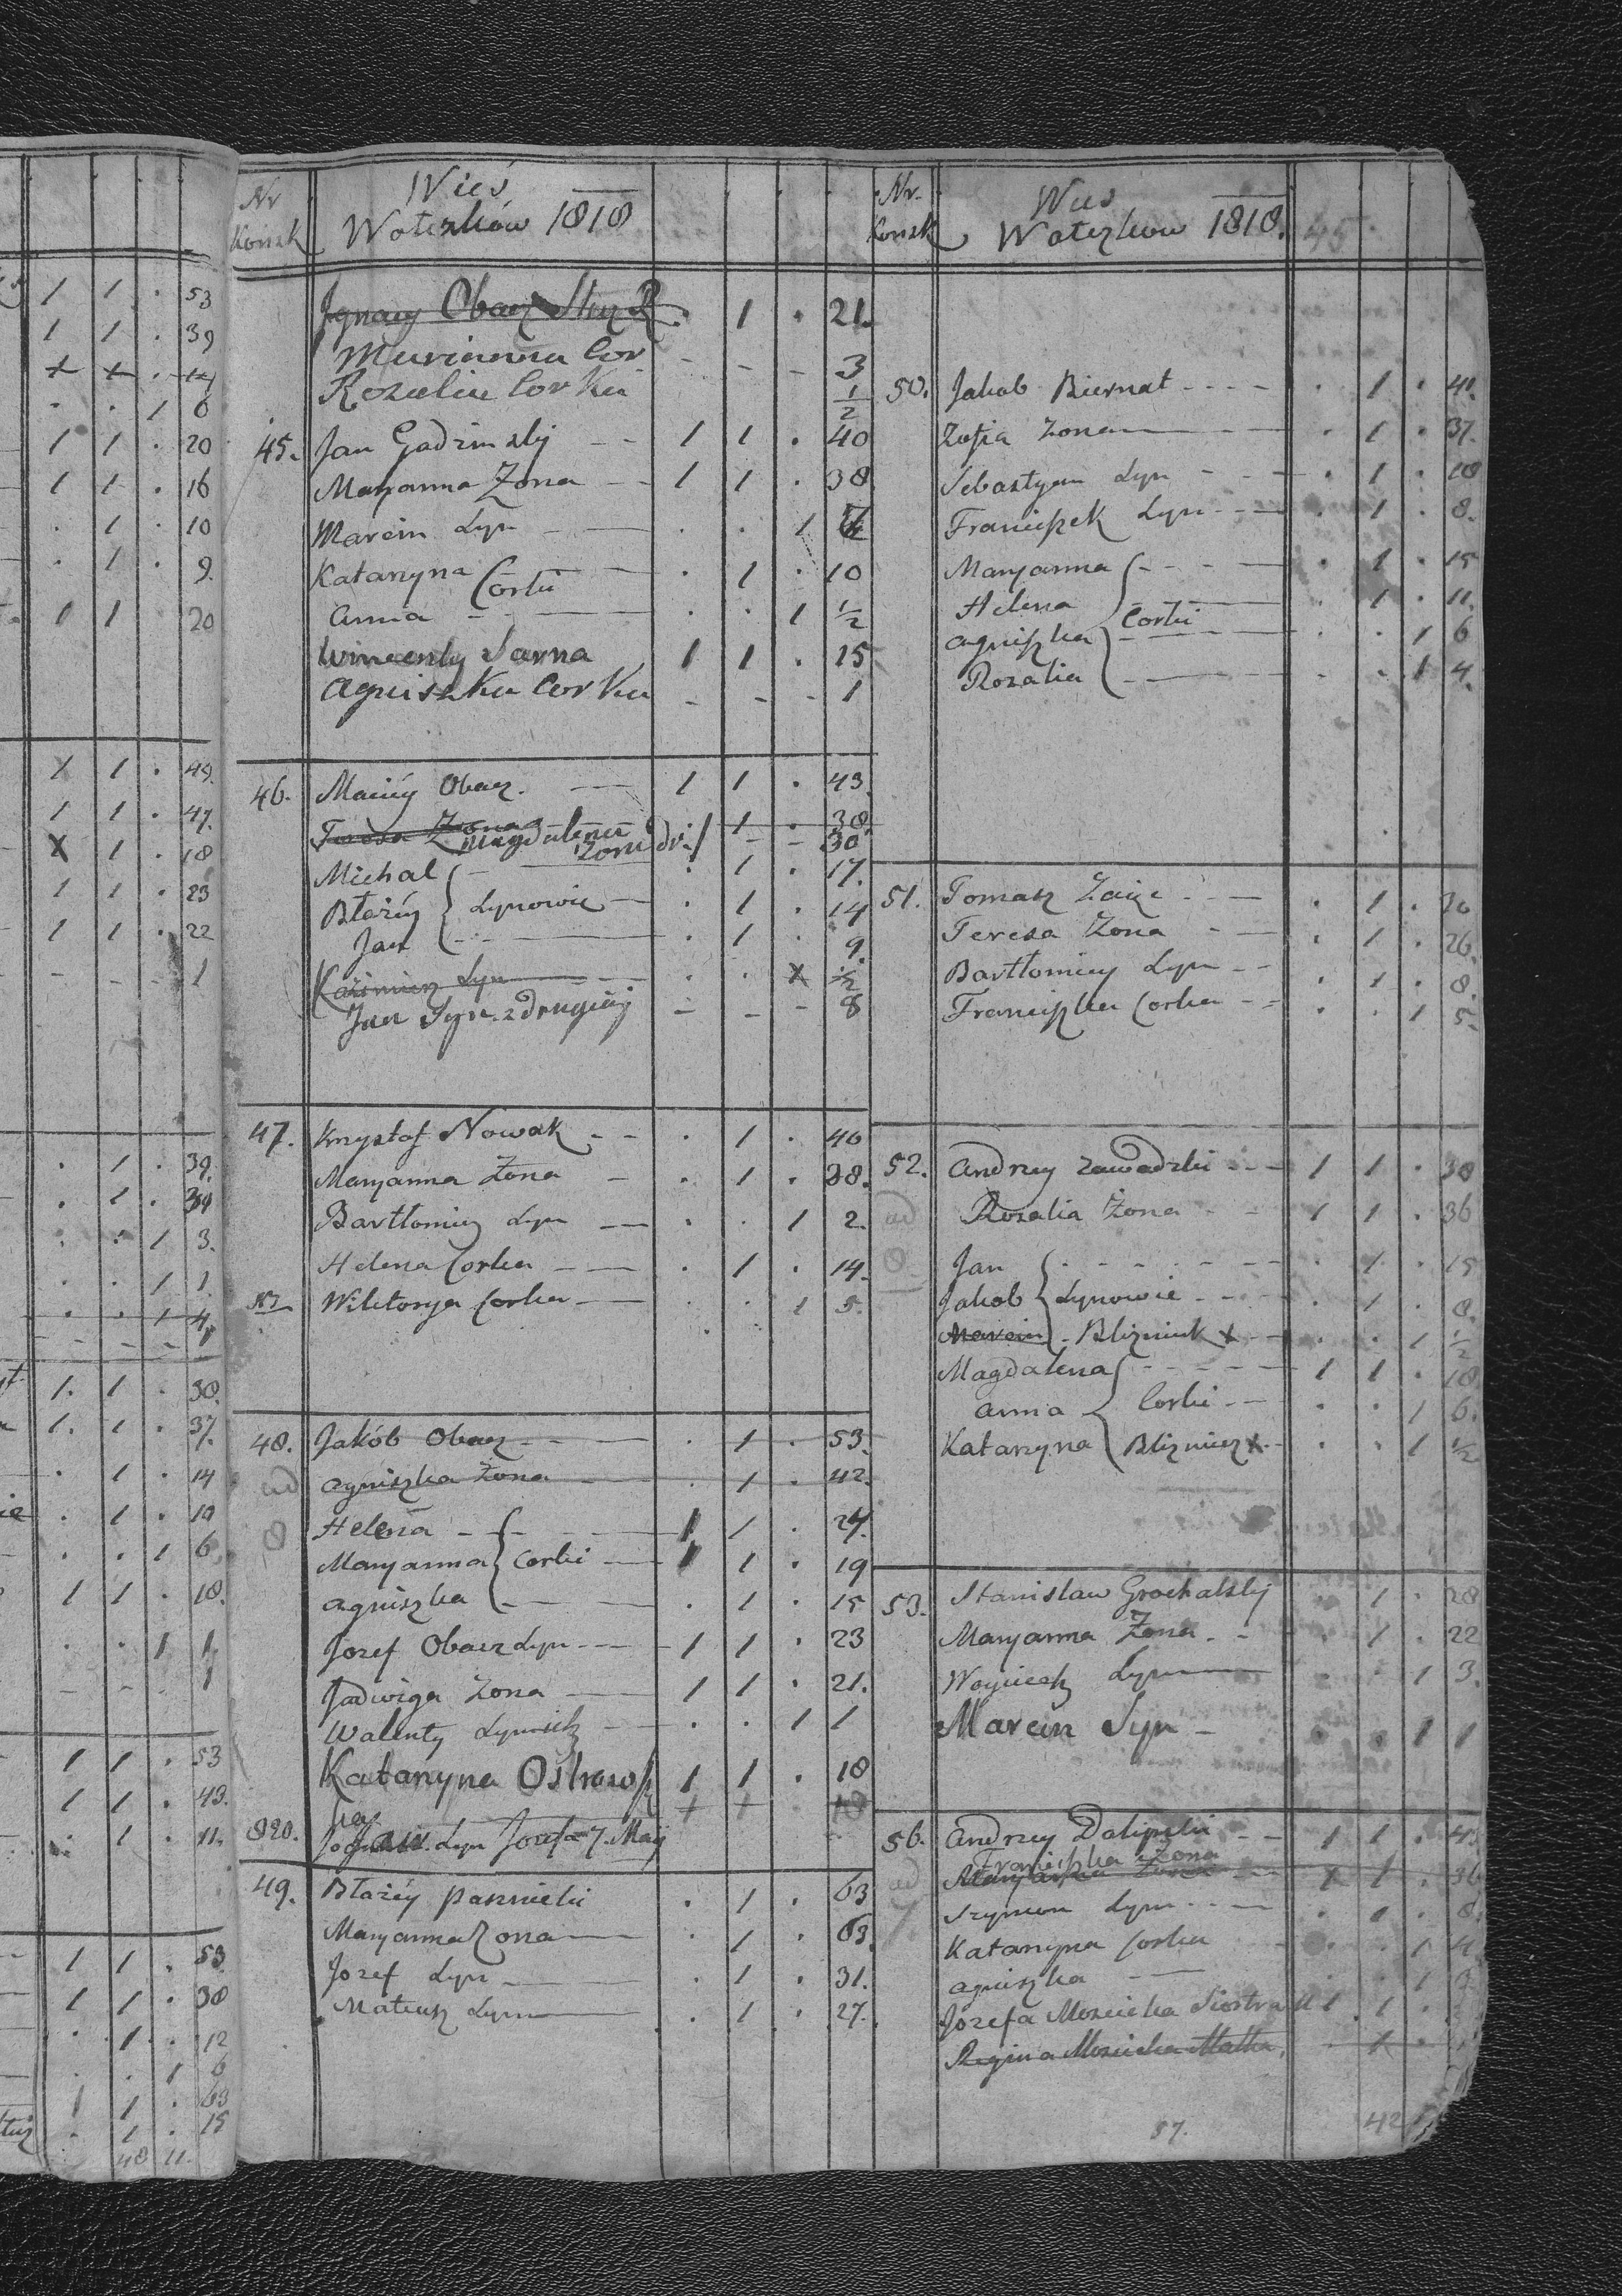 53
1 1 . 39
+ + . 14
. . 1 6
1 1 . 20
1 1 . 16
. 1 . 10
. 1 . 9.
1 1 20
X 1 . 49.
1 1 . 47.
X 1 . 18
1 1 . 23
1 1 . 22
- - - 1
. 1 . 39.
. 1 . 34
. . 1 3.
. . 1 1
. . 1 4
1. 1 . 30.
1. 1 . 37.
. 1 . 14
. 1 . 10
. . 1 6
1 1 . 18.
. . 1 1
1 1 . 53
1 1 . 43.
. 1 . 11.
1 1 . 53
1 1 . 38
. 1 . 12
. . 1 6
1 1 . 63
. 1 . 15
48 11.
Nr Konsk Wieś Wolezków 1818
Jgnacy Obacz Sluz R . 1 . 21.
Marianna Cor - - - 3
Rozalia Corka 1/2
45. Jan Gadzinsky -- 1 1 . 40
Maryanna Zona -- 1 1 . 38
Marcin Syn . . 1
Katarzyna Corki . 1 . 10
Anna . . 1 1/2
Wincenty Sarna 1 1 . 15
Agniszka Corka - - - 1
46. Maciey Obacz. 1 1 . 43
Teresa Zona . 1 . 38
Magdalena Zona dr. 1 - - 30
Michal . 1 . 17.
Błażey Synowie . 1 . 14
Jan . 1 . 9.
Kazimierz Syn . . X 1/2
Jan Syn z drugiey - - - 8
47. Krzysztof Nowak -- . 1 . 40
Maryanna Zona - . 1 . 38.
Bartłomiey Syn . . 1 2.
Helena Corka . 1 . 14.
Wiktorya Corka . . 1 5.
48. Jakób Obacz . 1 . 53.
ad Agniszka Zona . 1 . 42.
8 Helena 1 1 . 24.
Maryanna Corki 1 1 . 19
Agniszka . 1 . 15
Jozef Obacz Syn 1 1 . 23
Jadwiga Zona 1 1 . 21.
Walenty Synuk . . 1 1
Katarzyna Ostrows 1 1 . 18
ka + + 18
820. Syn Jozefa 7. May
49. Błażey . 1 . 63
Maryanna Zona . 1 . 63.
Jozef Syn . 1 . 31.
Mateusz Syn . 1 . 27.
Nr. Konsk Wies Wolezkow 1818. 45
50. Jakob Biernat . 1 . 40.
Zofia Zona . 1 . 37.
Sebastyan Syn . 1 . 10
Franciszek Syn . 1 . 8.
Maryanna . 1 . 15
Helena Corki . 1 . 11.
Agniszka . . 1 6
Rozalia . . 1 4.
51. Tomasz Zaięc . 1 . 30
Teresa Zona . 1 . 26.
Bartłomiey Syn . 1 . 8.
Franciszka Corka . . 1 5.
52. Andrzey Zawadzki 1 1 . 38
ad Rozalia Żona 1 1 . 36
8. Jan . 1 . 15
Jakob Synowie . 1 . 8.
Marcin Blizniuk X . . 1 1/2
Magdalena 1 1 . 18
Anna Corki . . 1 6.
Katarzyna Blizniucz X . . 1 1/2
53. Stanislaw Grochalsky . 1 . 28
Maryanna Żona . 1 . 22
Woyciech Syn . . 1 3.
Marcin Syn . . 1 1
56. Andrzey 1 1 . 43
Franciszka Zona
ad Maryanna Zona X 1 . 36
7 Szymon Syn . 1 . 8.
Katarzyna Corka . . 1 4
Agniszka . . 1
Józefa Moscicka Siostra 1 1 .
Regina Moscicka Matka . 1 .
87. 42